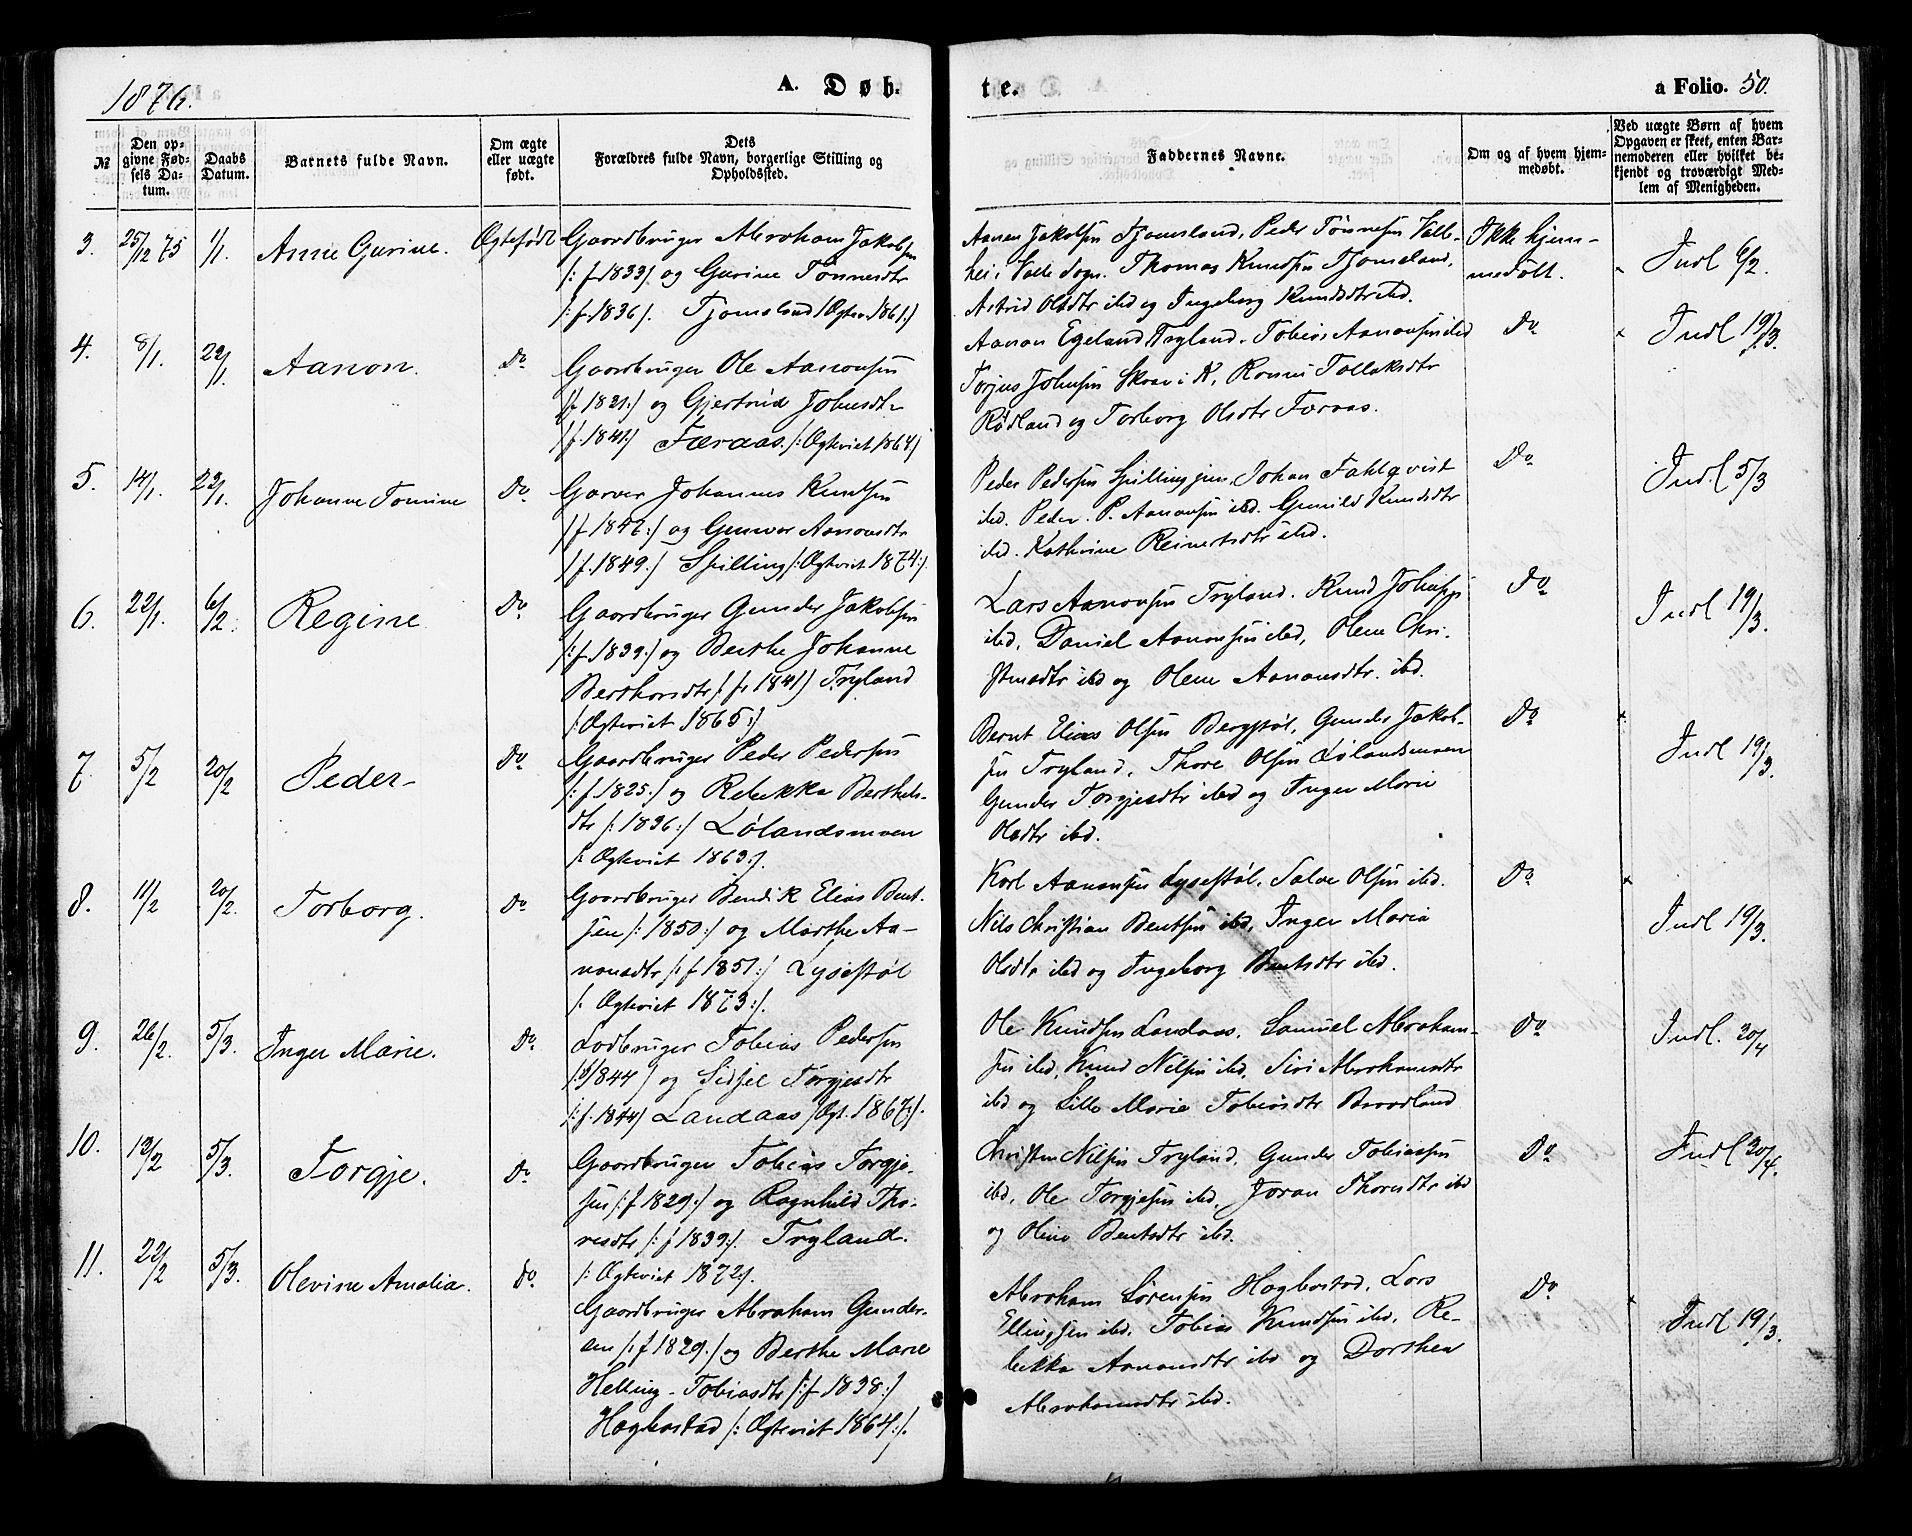 1876.
A. Døb-
te.
a Folio. 50.
№
Den op-
givne Fød-
sels Da-
tum.
Daabs
Datum.
Barnets fulde Navn.
Om ægte
eller uægte
født.
Dets
Forældres fulde Navn, borgerlige Stilling og
Opholdssted.
Faddernes Navne.
Om og af hvem hjem-
medøbt.
Ved uægte Børn af hvem
Opgaven er skeet, enten Bar-
nemoderen eller hvilket be-
kjendt og troværdigt Med-
lem af Menigheden.
3. 25/12 75 1/1 Anne Gurine. Ægtefødt
Gaardbruger Abraham Jakobsen
/: f 1833/ og Gurine Tønnesdtr
/: f 1836/. Tjomsland /Ægtev. 1861:/
Aanon Jakobsen Tjomsland, Peder Tønnesen Valle-
hei i Valle Sogn. Thomas Knudsen Tjomsland,
Astrid Olsdtr ibd og Ingeborg Knudsdtr ibd.
Ikke hjem-
medøbt.
Indl 6/2.
4. 8/1. 22/1. Aanon. Do
Gaardbruger Ole Aanonsen
/f 1821:/ og Gjertrud Johnsdtr
/f 1841:/ Færaas. /:Ægteviet 1864/
Aanon Egeland Tryland. Tobias Aanonsen ibd
Torjus Johnsen Skoav i K, Ronni Tollaksdtr
Rødland og Torborg Olsdtr Færaas.
Do
Indl 19/3.
5. 14/1. 23/1. Johanne Tomine Do
Garver Johannes Knudsen
/f 1847:/ og Gunvor Aanonsdtr
/f. 1849:/ Spilling /:Ægteviet 1874:/.
Peder Pedersen Spilling jun, Johan Fahlqvist
ibd. Peder. P. Aanonsen ibd. Gunild Knudsdtr
ibd. Kathrine Reinertsdtr ibd.
Do
Indl 5/3
6. 22/1. 6/2. Regine Do
Gaardbruger Gunder Jakobsen
/: f 1839:/ og Berthe Johanne
Berthorsdtr /: f. 1841/ Tryland
/: Ægteviet 1865:/
Lars Aanonsen Tryland. Knud Johnsen
ibd. Daniel Aanonsen ibd, Olene Chri-
stensdtr ibd og Olene Aanonsdtr. ibd.
Do
Indl 19/3.
7. 5/2 20/2 Peder- Do
Gaardbruger Peder Pedersen
/: f 1825:/ og Rebekka Berthels-
dtr /: 1836:/ Lølandsmoen
/: Ægteviet 1863:/.
Bernt Elias Olsen Bergstøl, Gunder Jakob-
sen Tryland, Thore Olsen Lølandsmoen
Gunder Torgjesdtr ibd og Inger Marie
Olsdtr ibd.
Do
Indl 19/3.
8. 11/2 20/2. Torborg. Do
Gaardbruger Bendik Elias Bent-
sen /: 1850:/ og Marthe Aa-
nonsdtr /: f 1851:/ Lysestøl
/: Ægteviet 1873:/.
Karl Aanonsen Lysestøl, Salve Olsen ibd.
Nils Christian Bentsen ibd, Inger Maria
Olsdtr ibd og Ingeborg Bentsdtr ibd.
Do
Indl 19/3.
9. 26/2. 5/3. Inger Marie. Do
Lodbruger Tobias Pedersen
/: 1844 / og Sidsel Torgjesdtr
/: f. 1844/ Landaas /Ægt. 1867:/.
Ole Knudsen Landaas, Samuel Abraham-
sen ibd, Knud Nilsen ibd, Siri Abrahamsdtr
ibd og Lille Marie Tobiasdtr Braadland
Do
Indl. 30/4
10. 19/2 5/3 Torgje. Do
Gaardbruger Tobias Torgje-
sen /: f 1829:/ og Ragnhild Tho-
resdtr /: f 1839:/. Tryland.
/: Ægteviet 1872:/.
Christen Nilsen Tryland, Gunder Tobiassen
ibd, Ole Torgjesen ibd, Joran Thoresdtr ibd
og Oline Bentsdtr ibd.
Do
Indl 30/4.
11. 22/2 5/3. Olevine Amalia. Do
Gaardbruger Abraham Gunder-
sen /: f 1829:/ og Berthe Marie
Helling-Tobiasdtr /: f 1838:/
Hægbostad /: Ægteviet 1864:/.
Abraham Sørensen Hægbostad, Lars
Ellingsen ibd. Tobias Knudsen ibd, Re-
bekka Aanonsdtr ibd og Dorthea
Abrahamsdtr ibd.
Do
Indl 19/3.